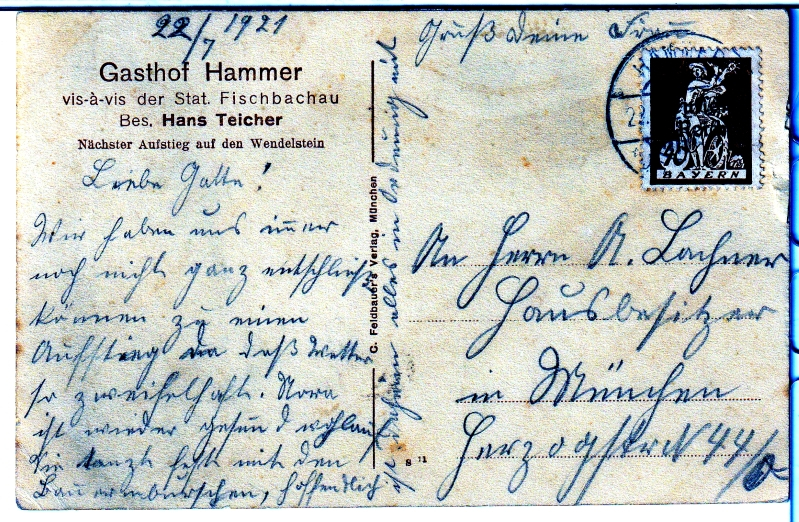 22/7 1921
Gasthof Hammer
vis-à-vis der Stat. Fischbachau
Bes. Hans Teicher
Nächster Aufstieg auf den Wendelstein
Liebe Gatte!
Wir haben uns immer
noch nicht ganz entschließen
können zu einen
Aufstieg da daß Wetter
so zweifelhaft. Nora
ist wieder gesund wohlauf
Sie tanzt fest mit den
Bauernburschen, hoffentlich
ist daheim alles in Ordnung mit
Gruß deine Frau
C. Feldbauer's Verlag, München
S 11
40
BAYERN
An Herrn A. Lachner
Hausbesitzer
in München
Herzogstr N 44/0